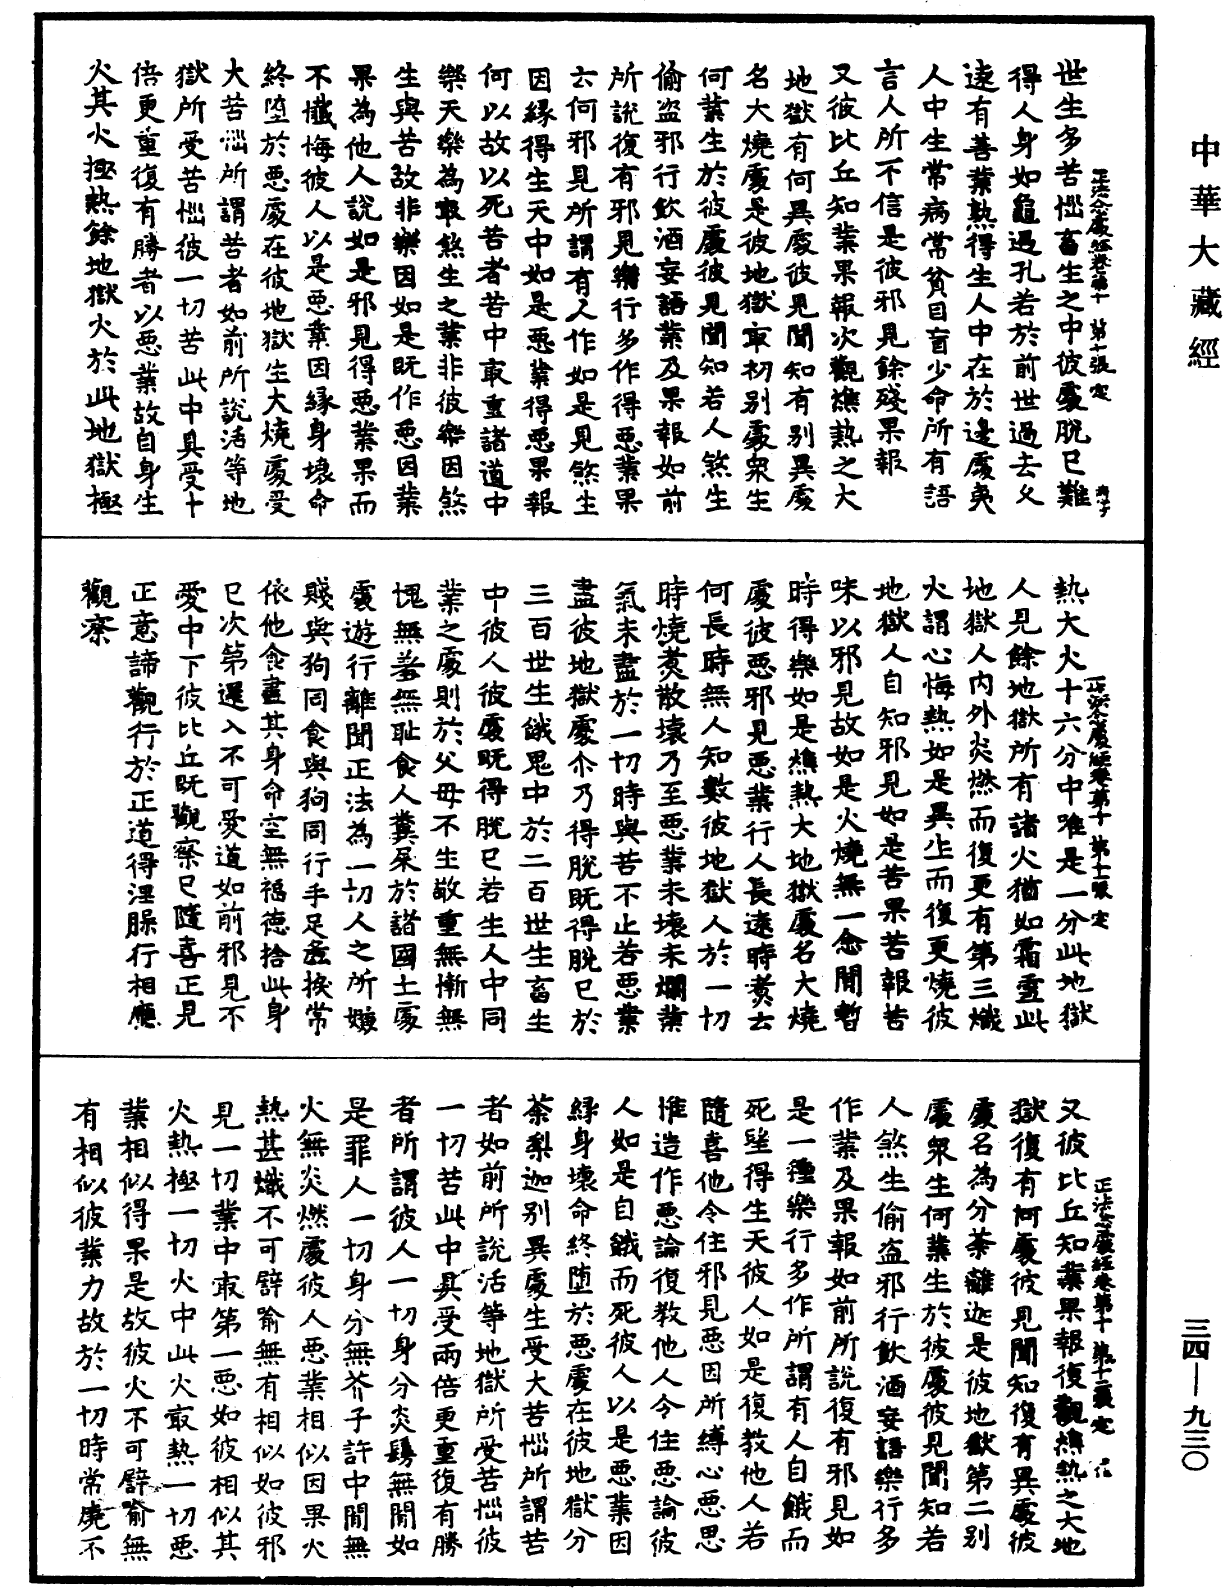 中華大藏經
正法念處經卷第十 第十張 定
世生多苦惱畜生之中彼處脫已難
得人身如龜遇孔若於前世過去久
遠有善業熟得生人中在於邊處夷
人中生常病常貧目盲少命所有語
言人所不信是彼邪見餘殘果報
又彼比丘知業果報次觀燋熱之大
地獄有何異處彼見聞知有別異處
名大燒處是彼地獄㝡初別處眾生
何業生於彼處彼見聞知若人煞生
偷盜邪行飲酒妄語業及果報如前
所說復有邪見樂行多作得惡業果
云何邪見所謂有人作如是見煞生
因緣得生天中如是惡業得惡果報
何以故以死苦者苦中㝡重諸道中
樂天樂為㝡煞生之業非彼樂因煞
生與苦故非樂因如是既作惡因業
果為他人說如是邪見得惡業果而
不懺悔彼人以是惡業因緣身壞命
終墮於惡處在彼地獄生大燒處受
大苦惱所謂苦者如前所說活等地
獄所受苦惱彼一切苦此中具受十
倍更重復有勝者以惡業故自身生
火其火極熱餘地獄火於此地獄極
正法念處經卷第十 第十一張 定
熱大火十六分中唯是一分此地獄
人見餘地獄所有諸火猶如霜雪此
地獄人內外炎燃而復更有第三熾
火謂心悔熱如是異生而復更燒彼
地獄人自知邪見如是苦果苦報苦
味以邪見故如是火燒無一念間暫
時得樂如是燋熱大地獄處名大燒
處彼惡邪見惡業行人長遠時煮云
何長時無人知數彼地獄人於一切
時燒煮散壞乃至惡業未壞未爛業
氣未盡於一切時與苦不止若惡業
盡彼地獄處尒乃得脫既得脫已於
三百世生餓鬼中於二百世生畜生
中彼人彼處既得脫已若生人中同
業之處則於父母不生敬重無慚無
愧無羞無恥食人糞屎於諸國土處
處遊行離聞正法為一切人之所嫌
賤與狗同食與狗同行手足麁挨常
依他食盡其身命空無福德捨此身
已次第還入不可愛道如前邪見不
愛中下彼比丘既觀察已隨喜正見
正意諦觀行於正道得涅槃行相應
觀察
正法念處經卷第十 第十二張 定
又彼比丘知業果報復觀燋熱之大地
獄復有何處彼見聞知復有異處彼
處名為分荼離迦是彼地獄第二別
處眾生何業生於彼處彼見聞知若
人煞生偷盜邪行飲酒妄語樂行多
作業及果報如前所說復有邪見如
是一種樂行多作所謂有人自餓而
死望得生天彼人如是復教他人若
隨喜他令住邪見惡因所縛心惡思
惟造作惡論復教他人令住惡論彼
人如是自餓而死彼人以是惡業因
緣身壞命終墮於惡處在彼地獄分
荼梨迦別異處生受大苦惱所謂苦
者如前所說活等地獄所受苦惱彼
一切苦此中具受兩倍更重復有勝
者所謂彼人一切身分炎鬘無間如
是罪人一切身分無芥子許中間無
火無炎燃處彼人惡業相似因果火
熱甚熾不可譬喻無有相似如彼邪
見一切業中㝡第一惡如彼相似其
火熱極一切火中此火㝡熱一切惡
業相似得果是故彼火不可譬喻無
有相似彼業力故於一切時常燒不
三四—九三〇